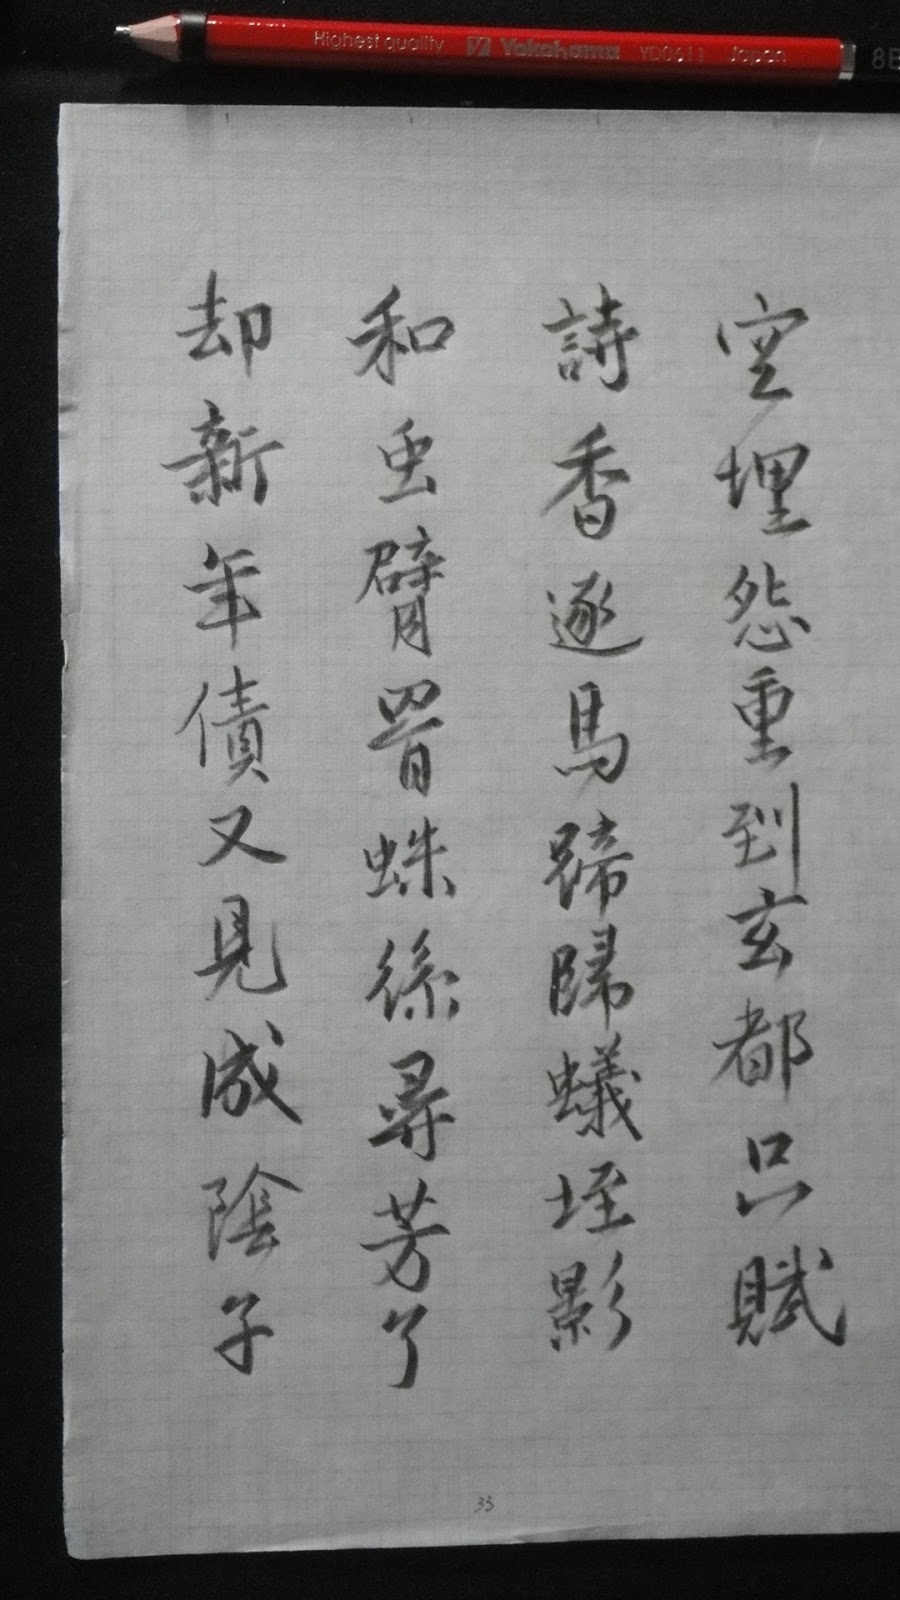 Highest quality Yokohama YD0611 Japan 8B
空埋怨重到玄都只賦
詩香逐馬蹄歸蟻垤影
和虫臂罥蛛絲尋芳了
却新年債又見成陰子
33